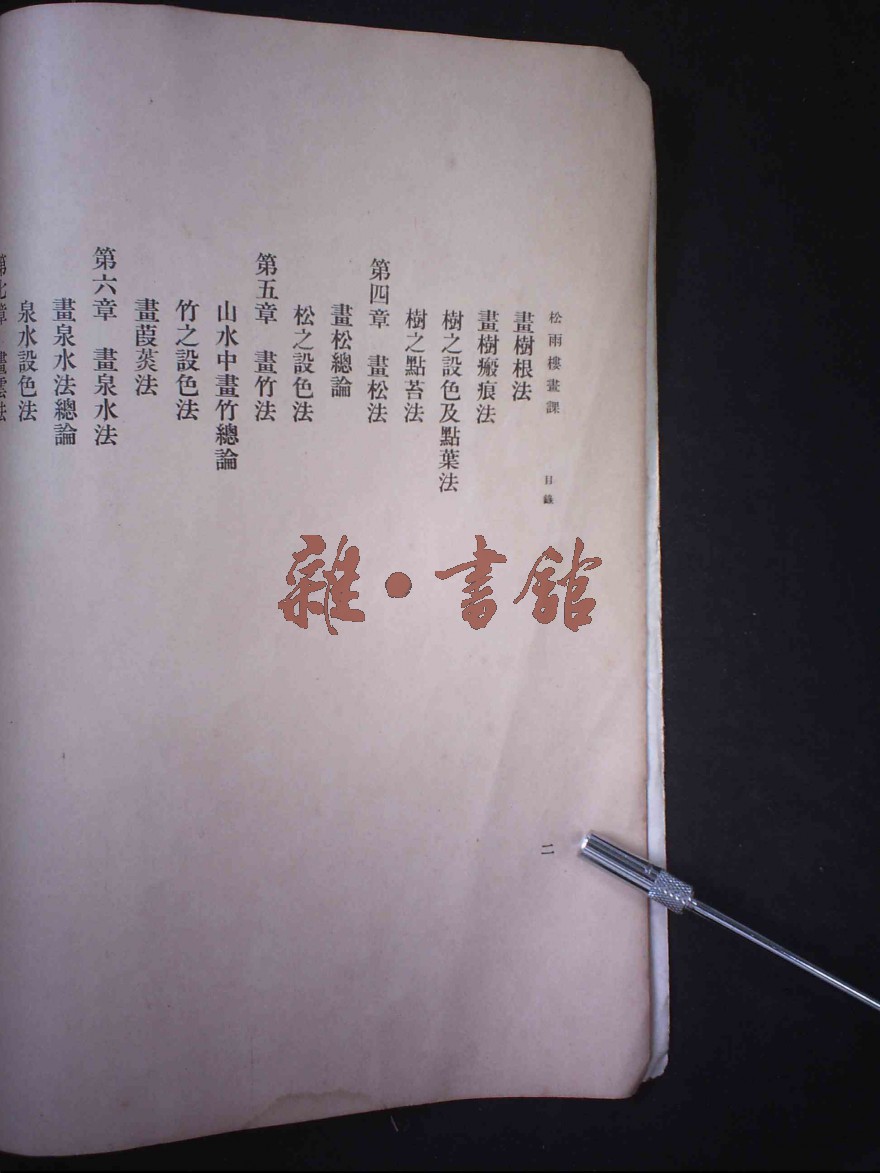 松雨樓畫課　目錄
二
畫樹根法
畫樹瘢痕法
樹之設色及點葉法
樹之點苔法
第四章　畫松法
畫松總論
松之設色法
第五章　畫竹法
山水中畫竹總論
竹之設色法
畫葭菼法
第六章　畫泉水法
畫泉水法總論
泉水設色法
第七章　畫雲法
雜・書館